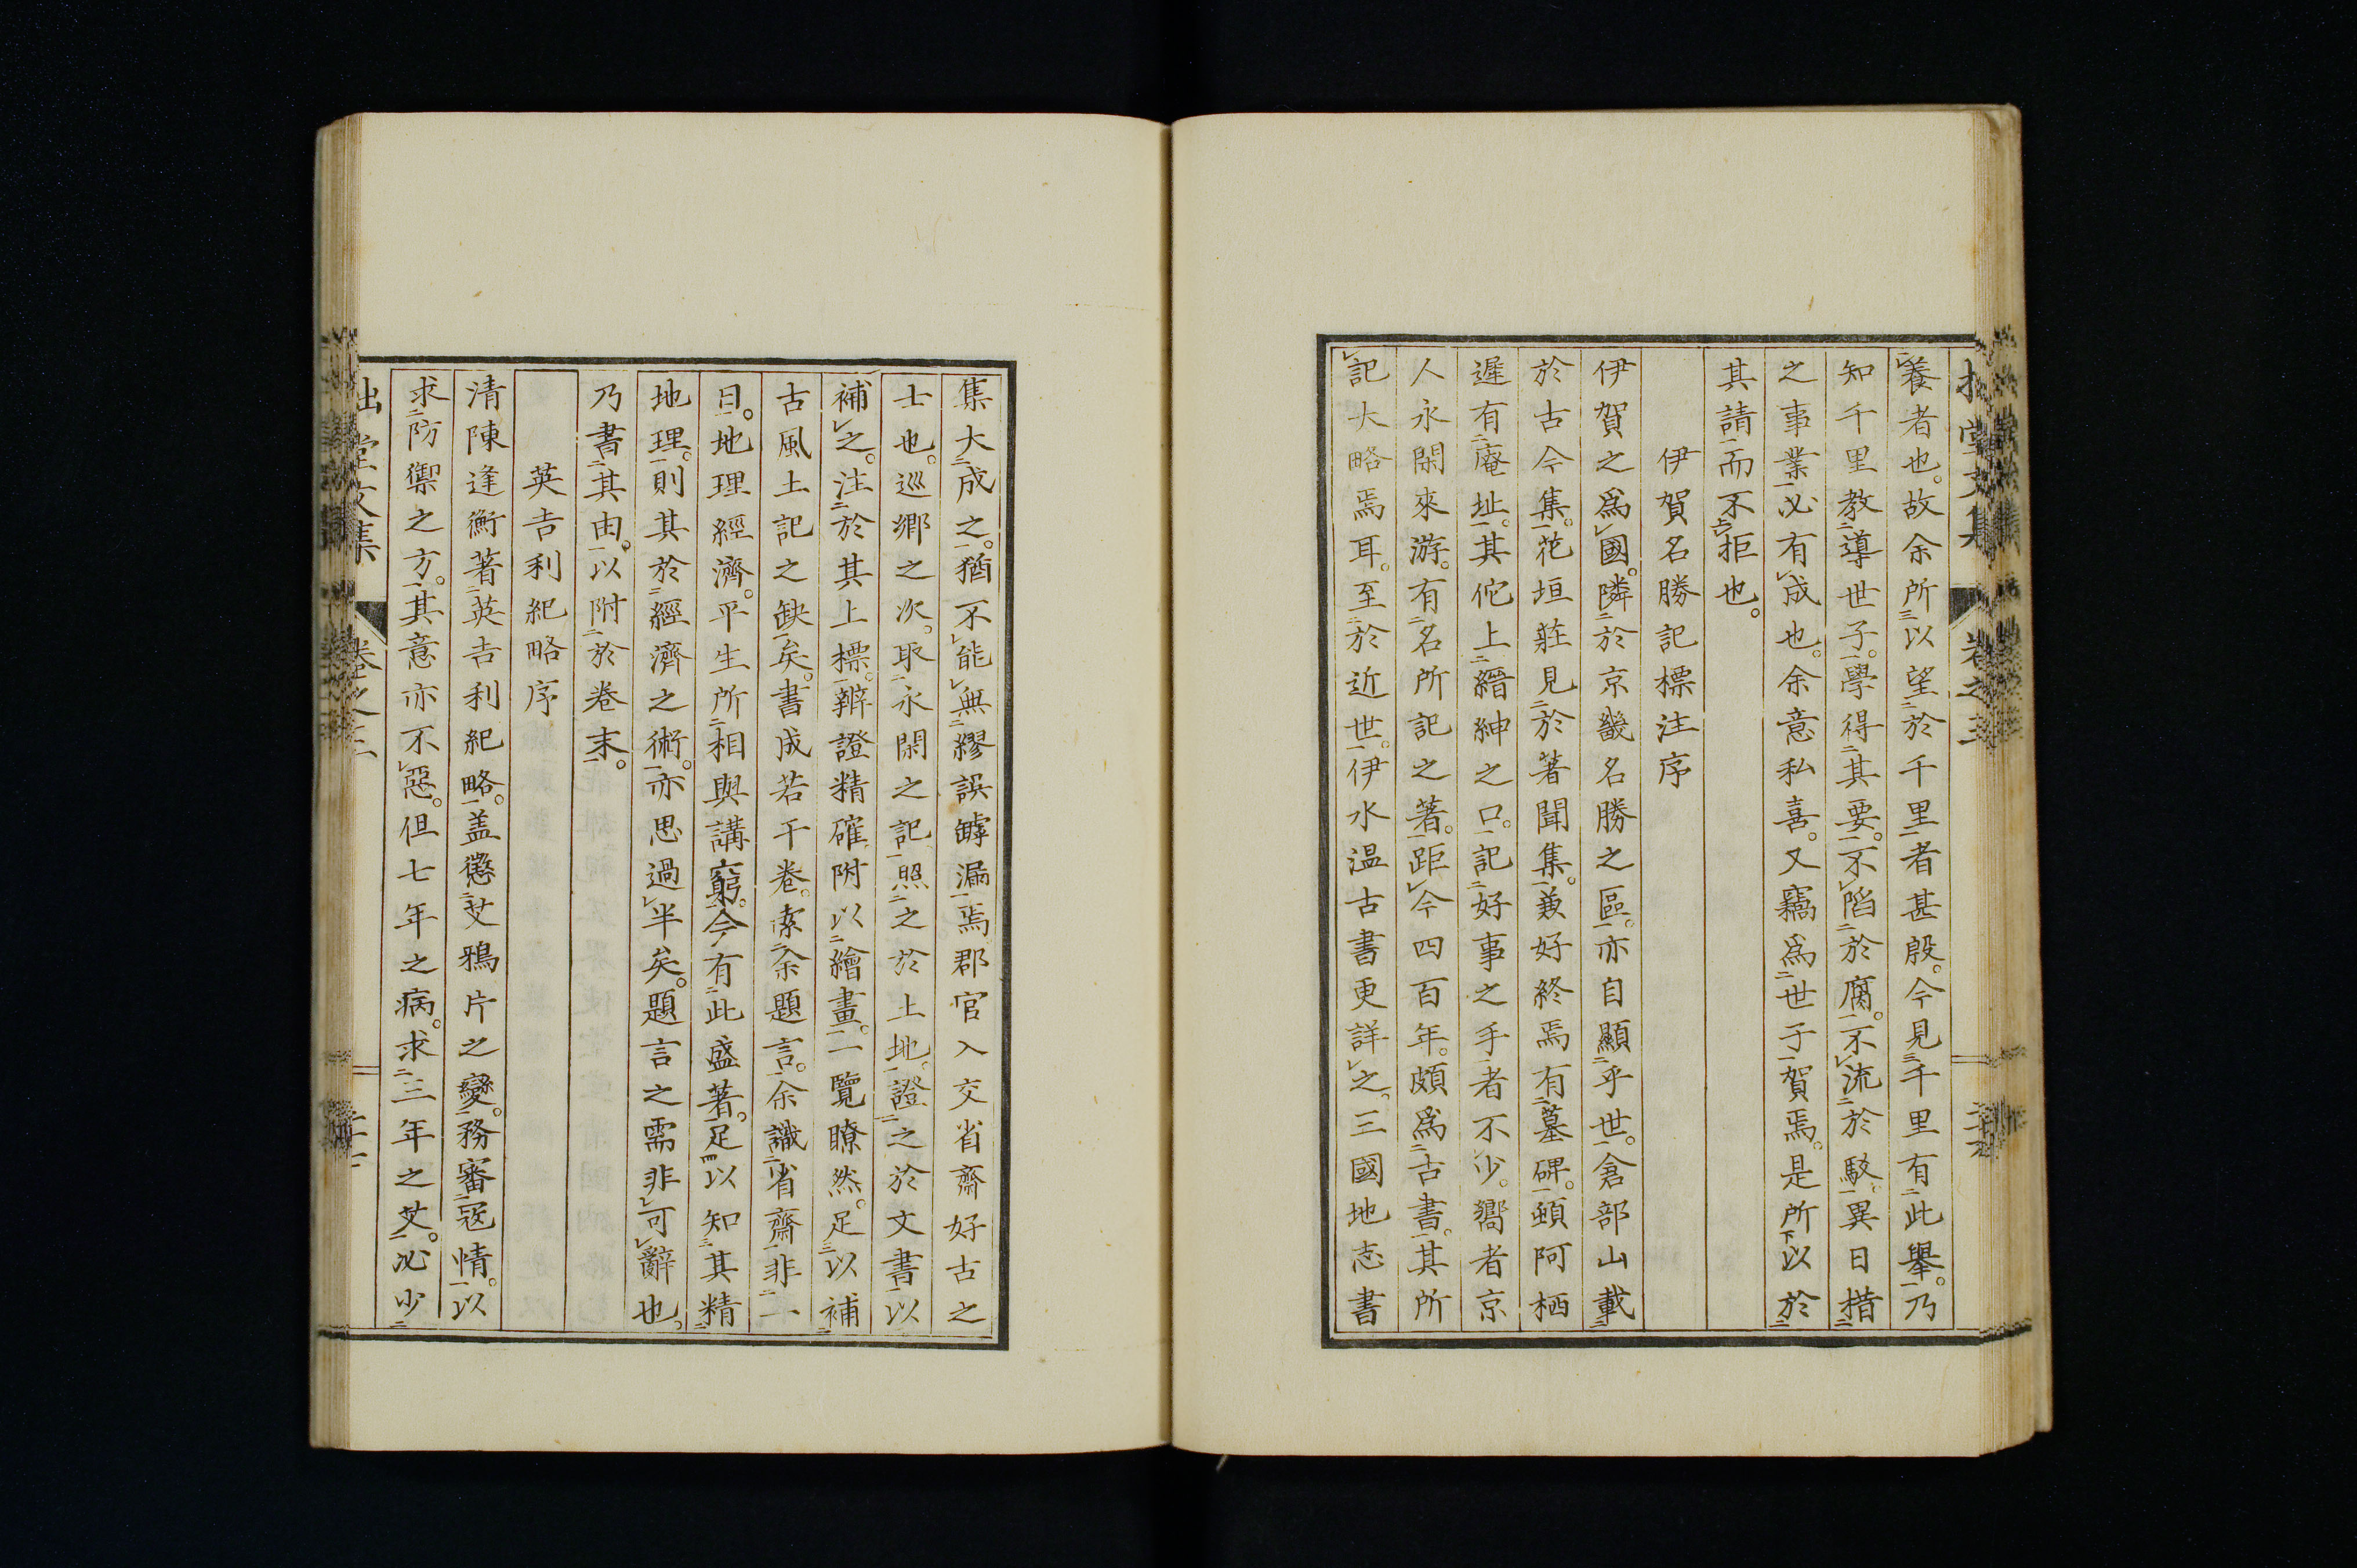 養者也。故余所以望於千里者甚殷。今見千里有此擧。乃
知千里教導世子。學得其要。不陷於腐。不流於駁。異日措
之事業必有成也。余意私喜。又竊爲世子賀焉。是所以於
其請而不拒也。
伊賀名勝記標注序
伊賀之爲國。隣於京畿名勝之區。亦自顯乎世。倉部山載
於古今集。花垣莊見於著聞集。兼好終焉有墓碑。頓阿栖
遲有庵址。其佗上縉紳之口。記好事之手者不少。嚮者京
人永閑來游。有名所記之著。距今四百年。頗爲古書。其所
記大略焉耳。至於近世。伊水温古書更詳之。三國地志書
集大成之。猶不能無繆誤罅漏焉郡官入交省齋好古之
士也。巡郷之次。取永閑之記照之於土地。證之於文書以
補之。注於其上標。辨證精確附以繪畫。一覽瞭然。足以補
古風土記之缺矣。書成若干卷。索余題言。余識省齋非一
日。地理經濟。平生所相與講窮。今有此盛著。足以知其精
地理。則其於經濟之術。亦思過半矣。題言之需非可辭也。
乃書其由。以附於卷末。
英吉利紀略序
清陳逢衡著英吉利紀略。盖懲艾鴉片之變。務審寇情。以
求防禦之方。其意亦不惡。但七年之病。求三年之艾。必少